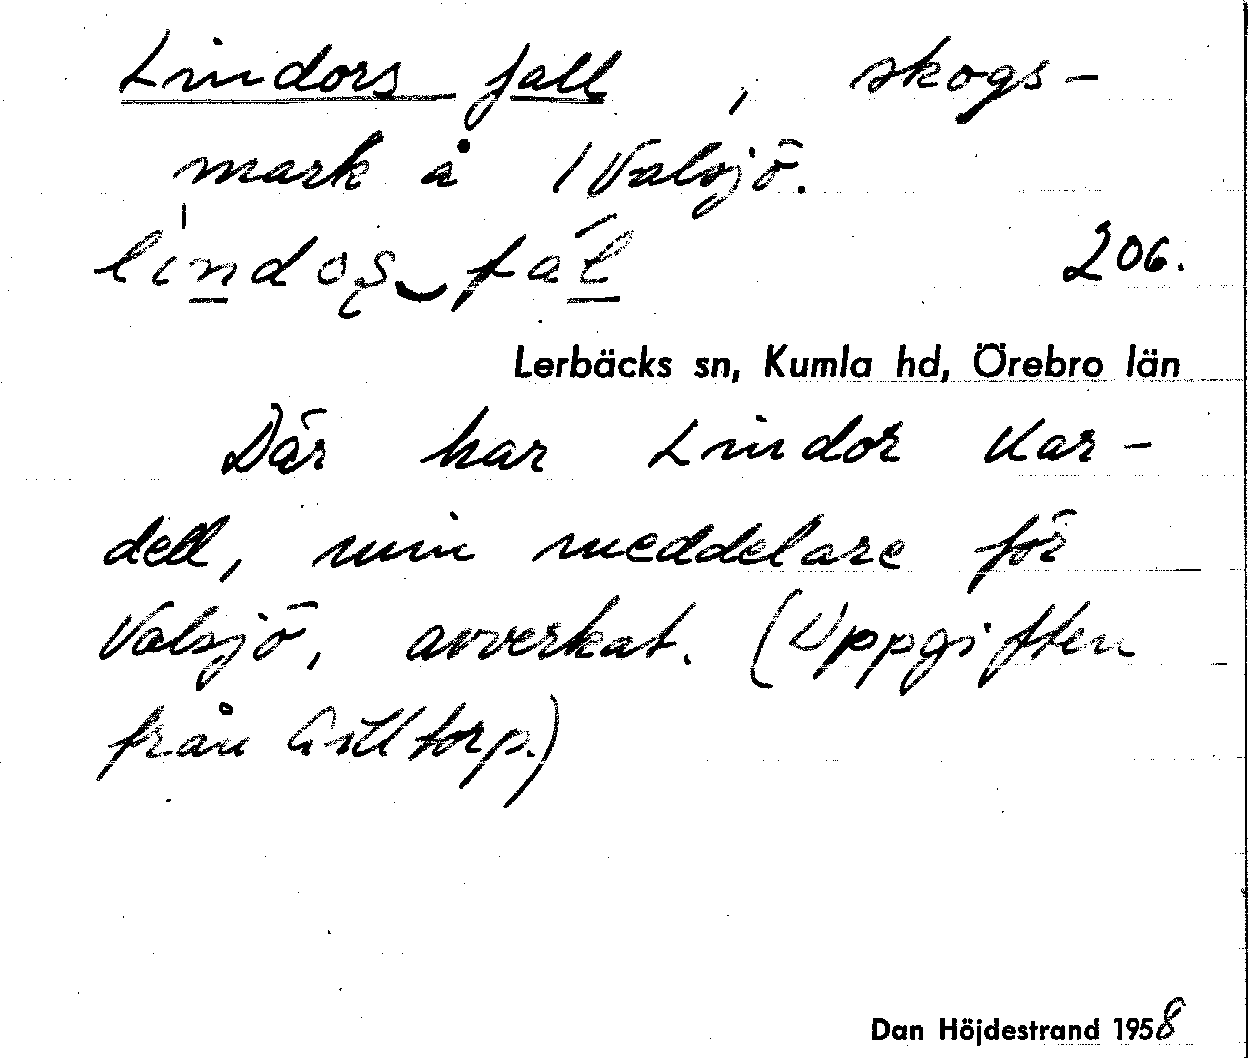 Lindors fall, skogs-
mark å 1 Valsjö.
206.
Lerbäcks sn, Kumla hd, Örebro län
Där har Lindor Kar-
dell, min meddelare för
Valsjö, avverkat. (Uppgiften
från
Dan Höjdestrand 1958